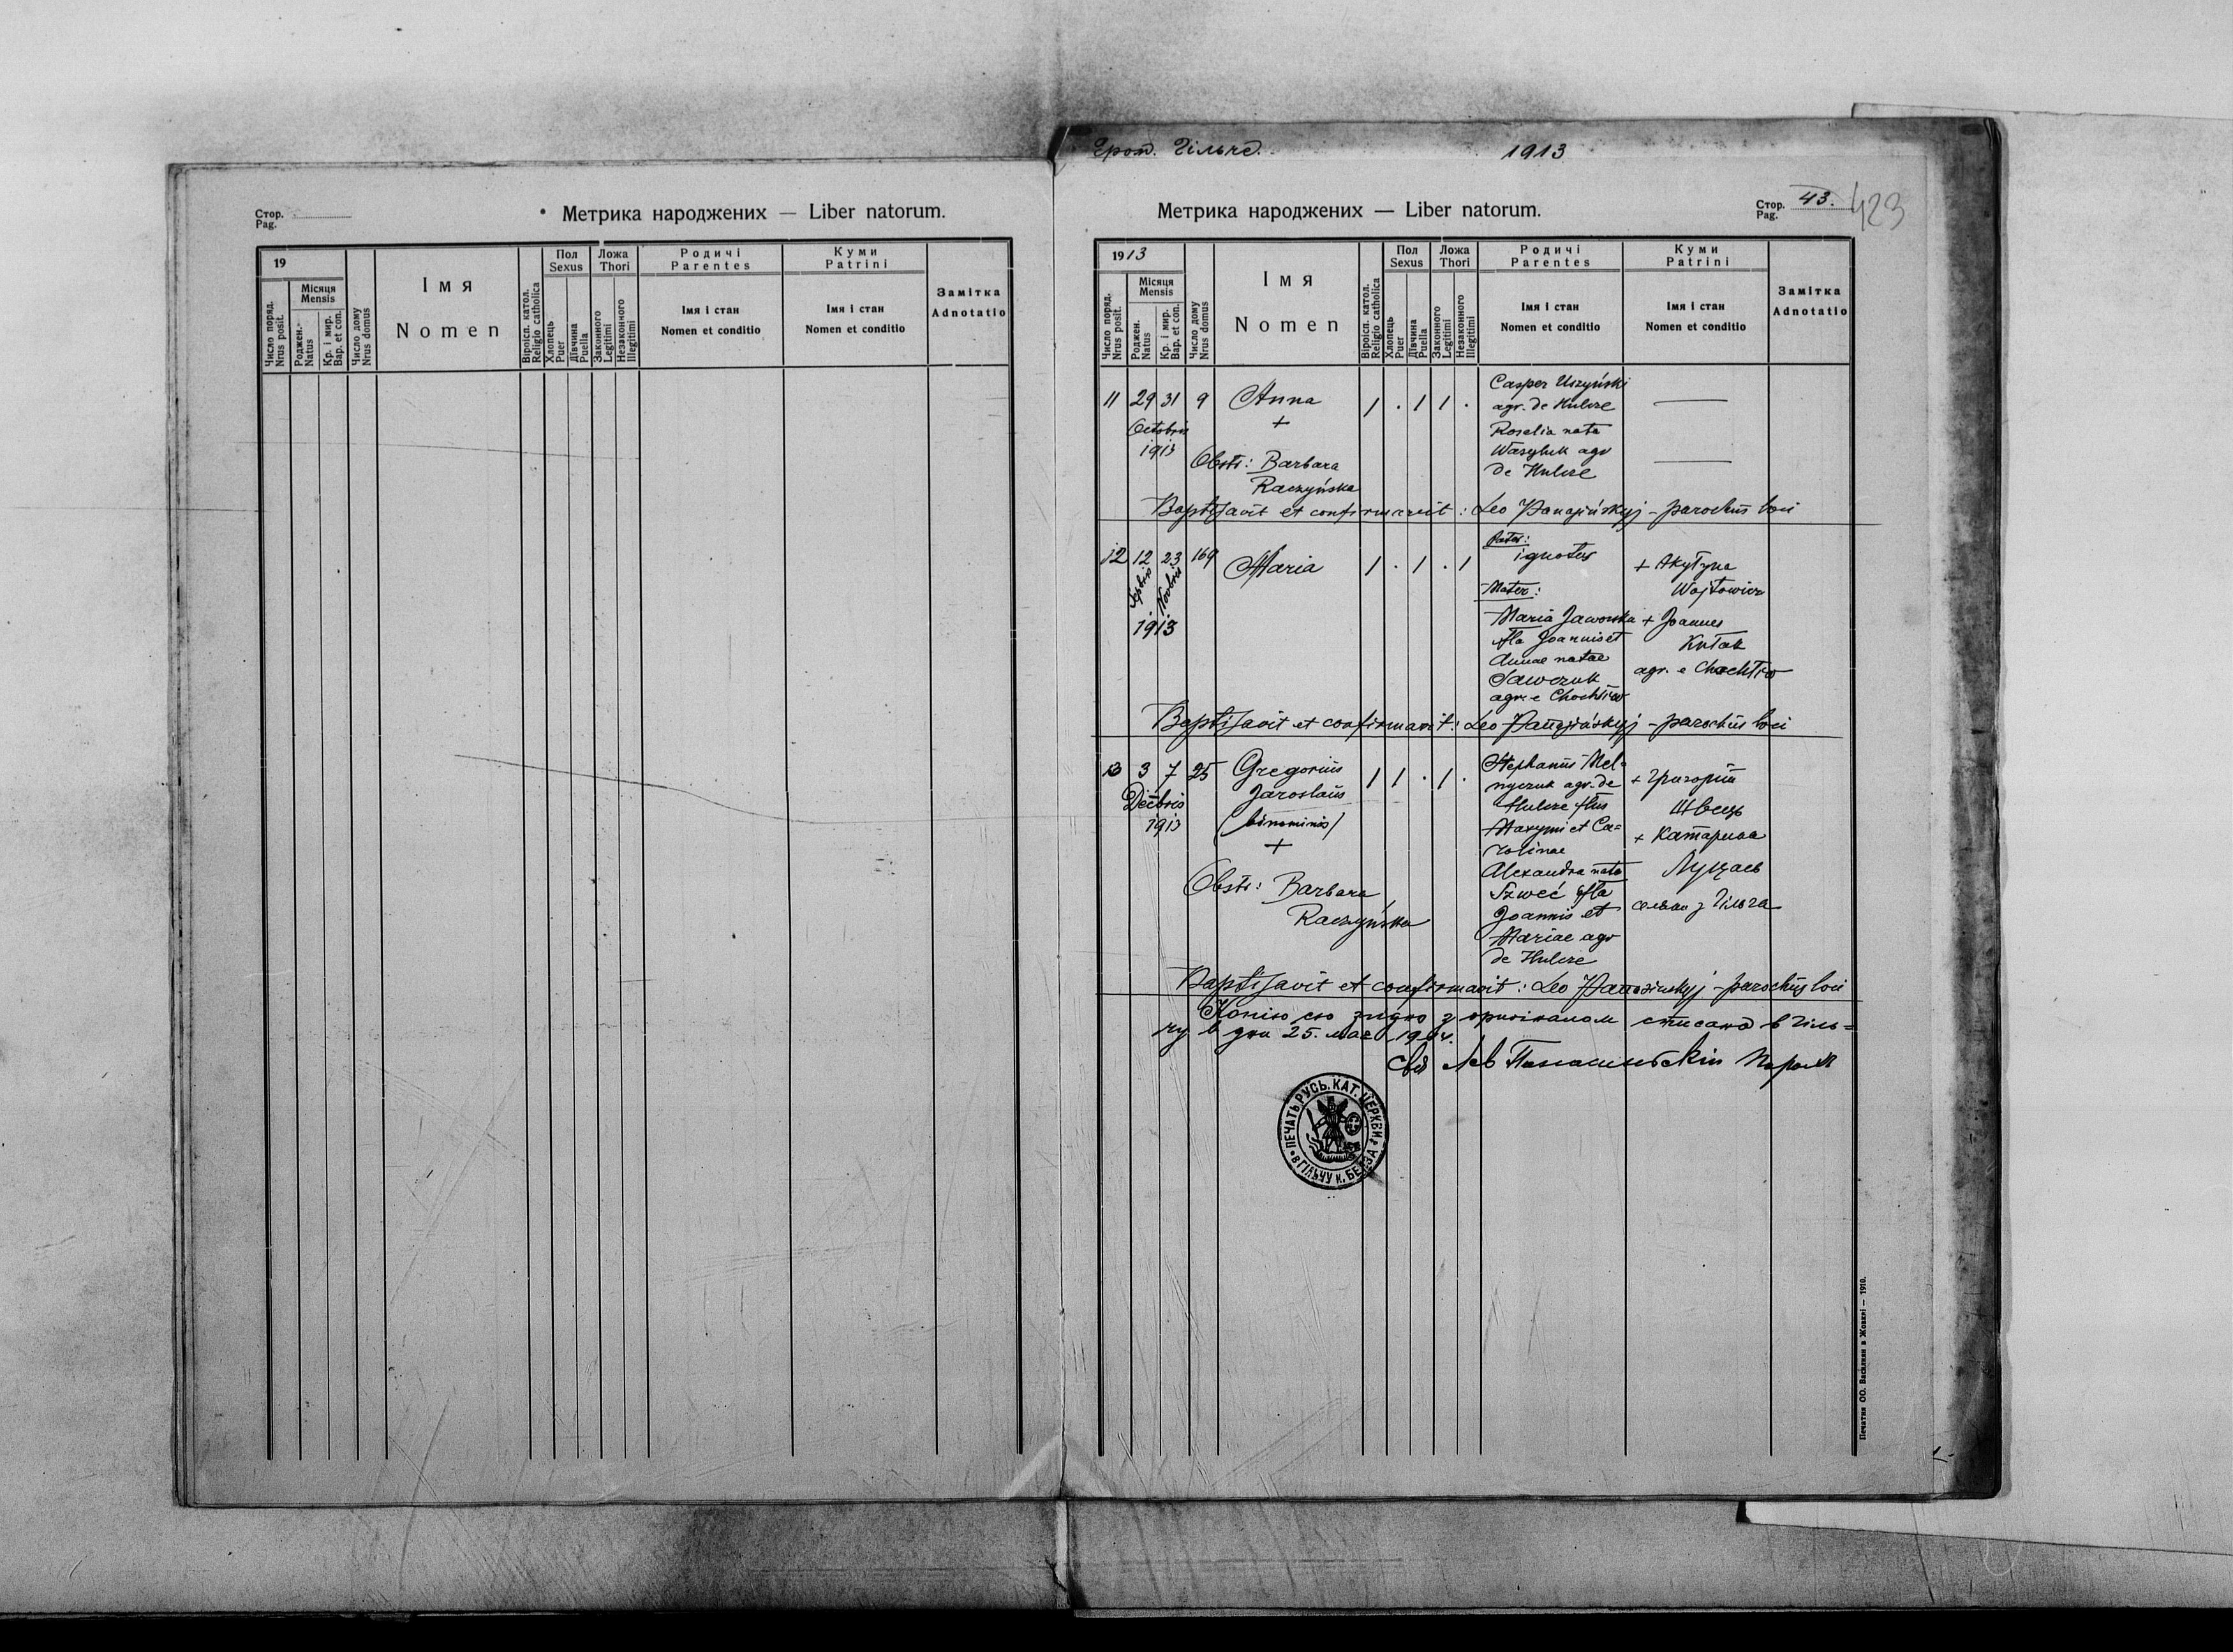 Стор.
Pag.
Метрика народжених — Liber natorum.
19
Місяця
Mensis
Число поряд.
Nrus posit.
Роджен.
Natus
Кр. і мир.
Bap. et con.
Число дому
Nrus domus
Імя
Nomen
Віроісп. катол.
Religio catholica
Пол
Sexus
Хлопець
Puer
Дівчина
Puella
Ложа
Thori
Законного
Legitimi
Незаконного
Illegitimi
Родичі
Parentes
Імя і стан
Nomen et conditio
Куми
Patrini
Імя і стан
Nomen et conditio
Замітка
Adnotatio
Гром. Гільче.
1913
Метрика народжених — Liber natorum.
Стор.
Pag.
43.
423
1913
Місяця
Mensis
Число поряд.
Nrus posit.
Роджен.
Natus
Кр. і мир.
Bap. et con.
Число дому
Nrus domus
Імя
Nomen
Віроісп. катол.
Religio catholica
Пол
Sexus
Хлопець
Puer
Дівчина
Puella
Ложа
Thori
Законного
Legitimi
Незаконного
Illegitimi
Родичі
Parentes
Імя і стан
Nomen et conditio
Куми
Patrini
Імя і стан
Nomen et conditio
Замітка
Adnotatio
11 29 31 9 Anna + 1 . 1 1 .
Octobris
1913
Obstr: Barbara
Raczyńska
Casper Uszyński
agr. de Hulcze
Rosalia nata
Wasyluk agr
de Hulcze
Baptisavit et confirmavit: Leo Panasińskyj - parochus loci
12 12 23 169 Maria 1 . 1 . 1
Septbris Novbris
1913
Pater:
ignotus
Mater:
Maria Jaworska
fla Joannis et
Annae natae
Sawczuk
agr. e Chochłów
+ Akylyna
Wojtowicz
+ Joannes
Kutak
agr. e Chochłów
Baptisavit et confirmavit: Leo Panasińskyj - parochus loci
13 3 7 25 Gregorius 1 1 . 1 .
Jaroslaus
Decbris
1913
(binominis)
+
Obstr: Barbara
Raczyńska
Stephanus Mel-
nyczuk agr. de
Hulcze flus
Maxymi et Ca-
rolinae
Alexandra nata
Szweć fla
Joannis et
Mariae agr
de Hulcze
+ Григорій
Швець
+ Катарина
з Гільча
Baptisavit et confirmavit: Leo Panasinskyj - parochus loci
Копію сю згідно з оригіналом списано в Гіль=
чу в дни 25. мая
Лев Панасиньскій парох
ПЕЧАТЬ РУСЬ. КАТ. ЦЕРКВИ
В ГІЛЬЧУ К. БЕЛЗА
Печатня ОО. Василиян в Жовкві — 1910.